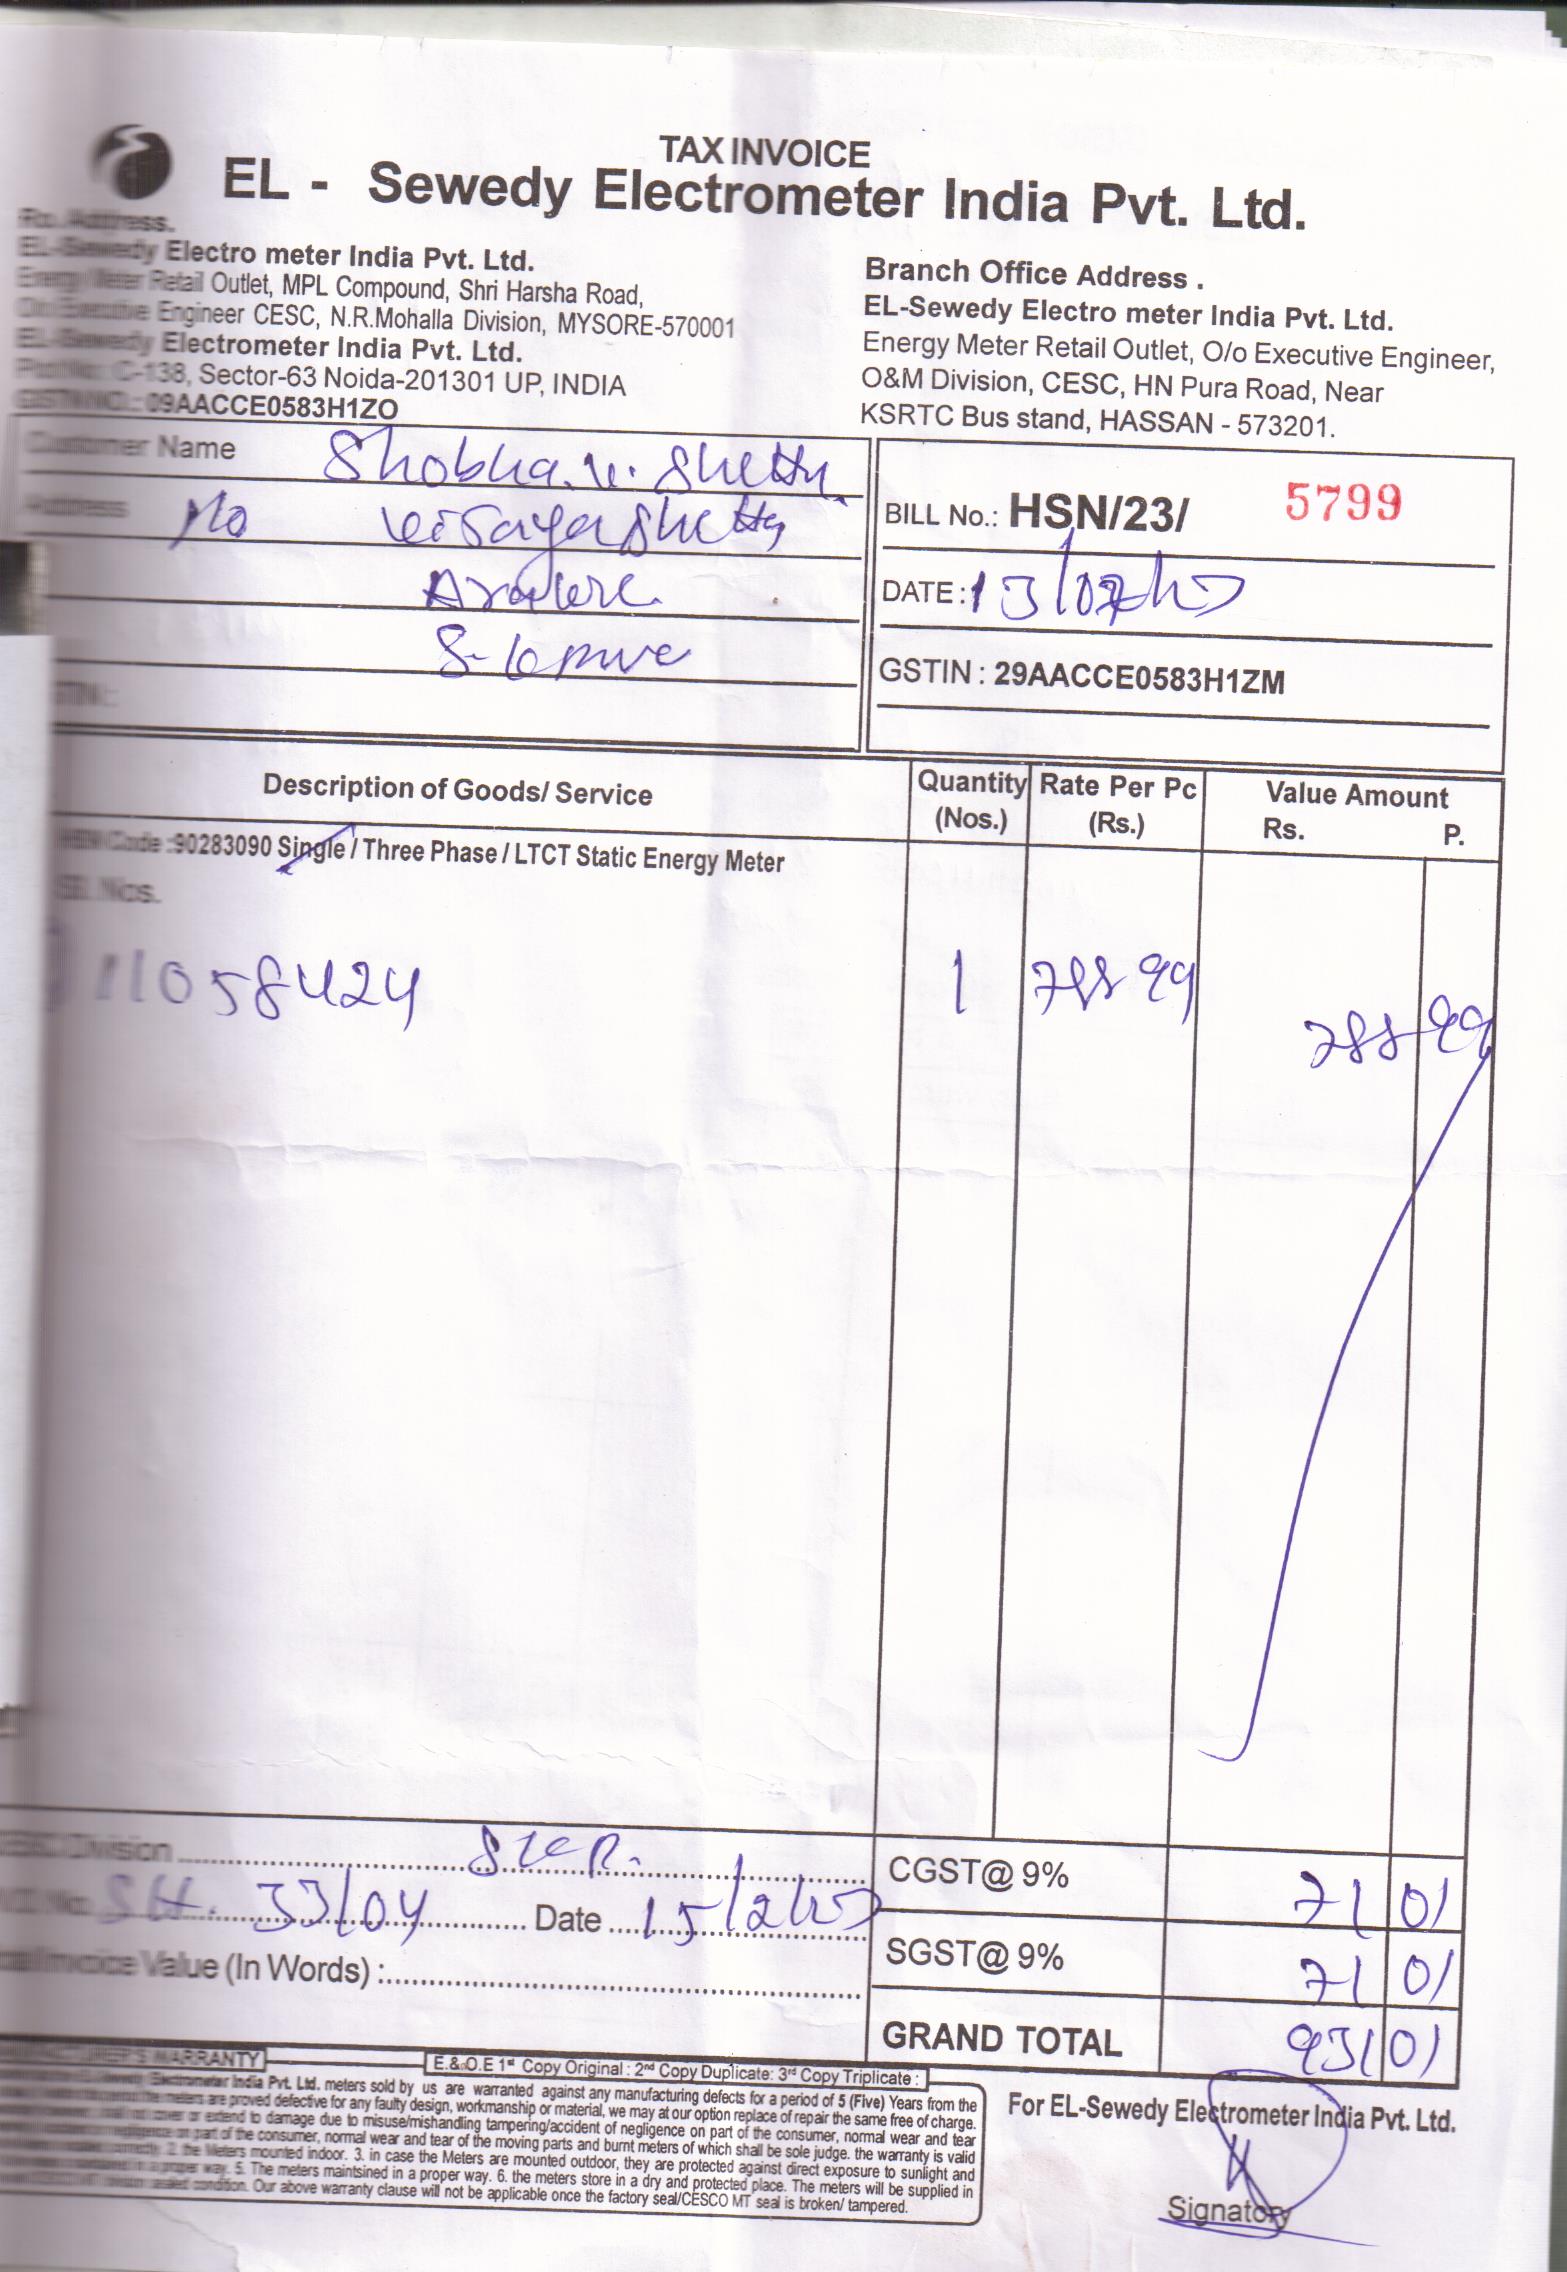 TAX INVOICE
EL - Sewedy Electrometer India Pvt. Ltd.
Ro. Address.
EL-Sewedy Electro meter India Pvt. Ltd.
Energy Meter Retail Outlet, MPL Compound, Shri Harsha Road,
O/o Executive Engineer CESC, N.R.Mohalla Division, MYSORE-570001
EL-Sewedy Electrometer India Pvt. Ltd.
C-138, Sector-63 Noida-201301 UP, INDIA
GSTIN NO.: 09AACCE0583H1ZO
Branch Office Address .
EL-Sewedy Electro meter India Pvt. Ltd.
Energy Meter Retail Outlet, O/o Executive Engineer,
O&M Division, CESC, HN Pura Road, Near
KSRTC Bus stand, HASSAN - 573201.
Customer Name Shobha.V. Shetty.
Address
BILL No.: HSN/23/ 5799
DATE : 
GSTIN : 29AACCE0583H1ZM
Description of Goods/ Service
Quantity (Nos.)
Rate Per Pc (Rs.)
Value Amount
Rs. P.
HSN Code :90283090 Single / Three Phase / LTCT Static Energy Meter
Sl. Nos.
11058424 1 788 99
788 99
Division
33/04 Date 15/2/
Invoice Value (In Words) :
CGST@ 9% 71 01
SGST@ 9% 71 01
GRAND TOTAL 931 01
WARRANTY
E.&.O.E 1st Copy Original : 2nd Copy Duplicate: 3rd Copy Triplicate :
Electrometer India Pvt. Ltd. meters sold by us are warranted against any manufacturing defects for a period of 5 (Five) Years from the
the meters are proved defective for any faulty design, workmanship or material, we may at our option replace of repair the same free of charge.
cover or extend to damage due to misuse/mishandling tampering/accident of negligence on part of the consumer, normal wear and tear
on part of the consumer, normal wear and tear of the moving parts and burnt meters of which shall be sole judge. the warranty is valid
2. the Meters mounted indoor. 3. in case the Meters are mounted outdoor, they are protected against direct exposure to sunlight and
in a proper way. 5. The meters maintsined in a proper way. 6. the meters store in a dry and protected place. The meters will be supplied in
sealed condition. Our above warranty clause will not be applicable once the factory seal/CESCO MT seal is broken/ tampered.
For EL-Sewedy Electrometer India Pvt. Ltd.
Signatory